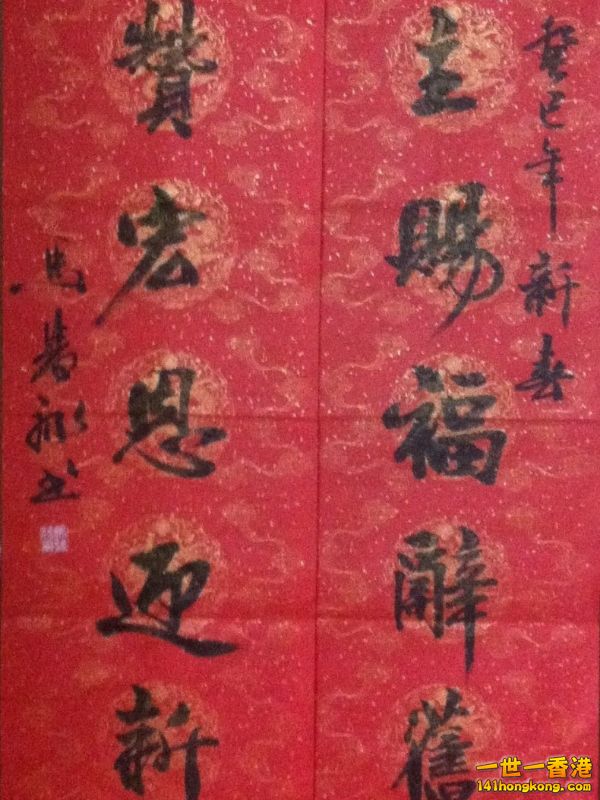 癸巳年新春
主賜福辭舊
贊宏恩迎新
書
一世一香港
141hongkong.com